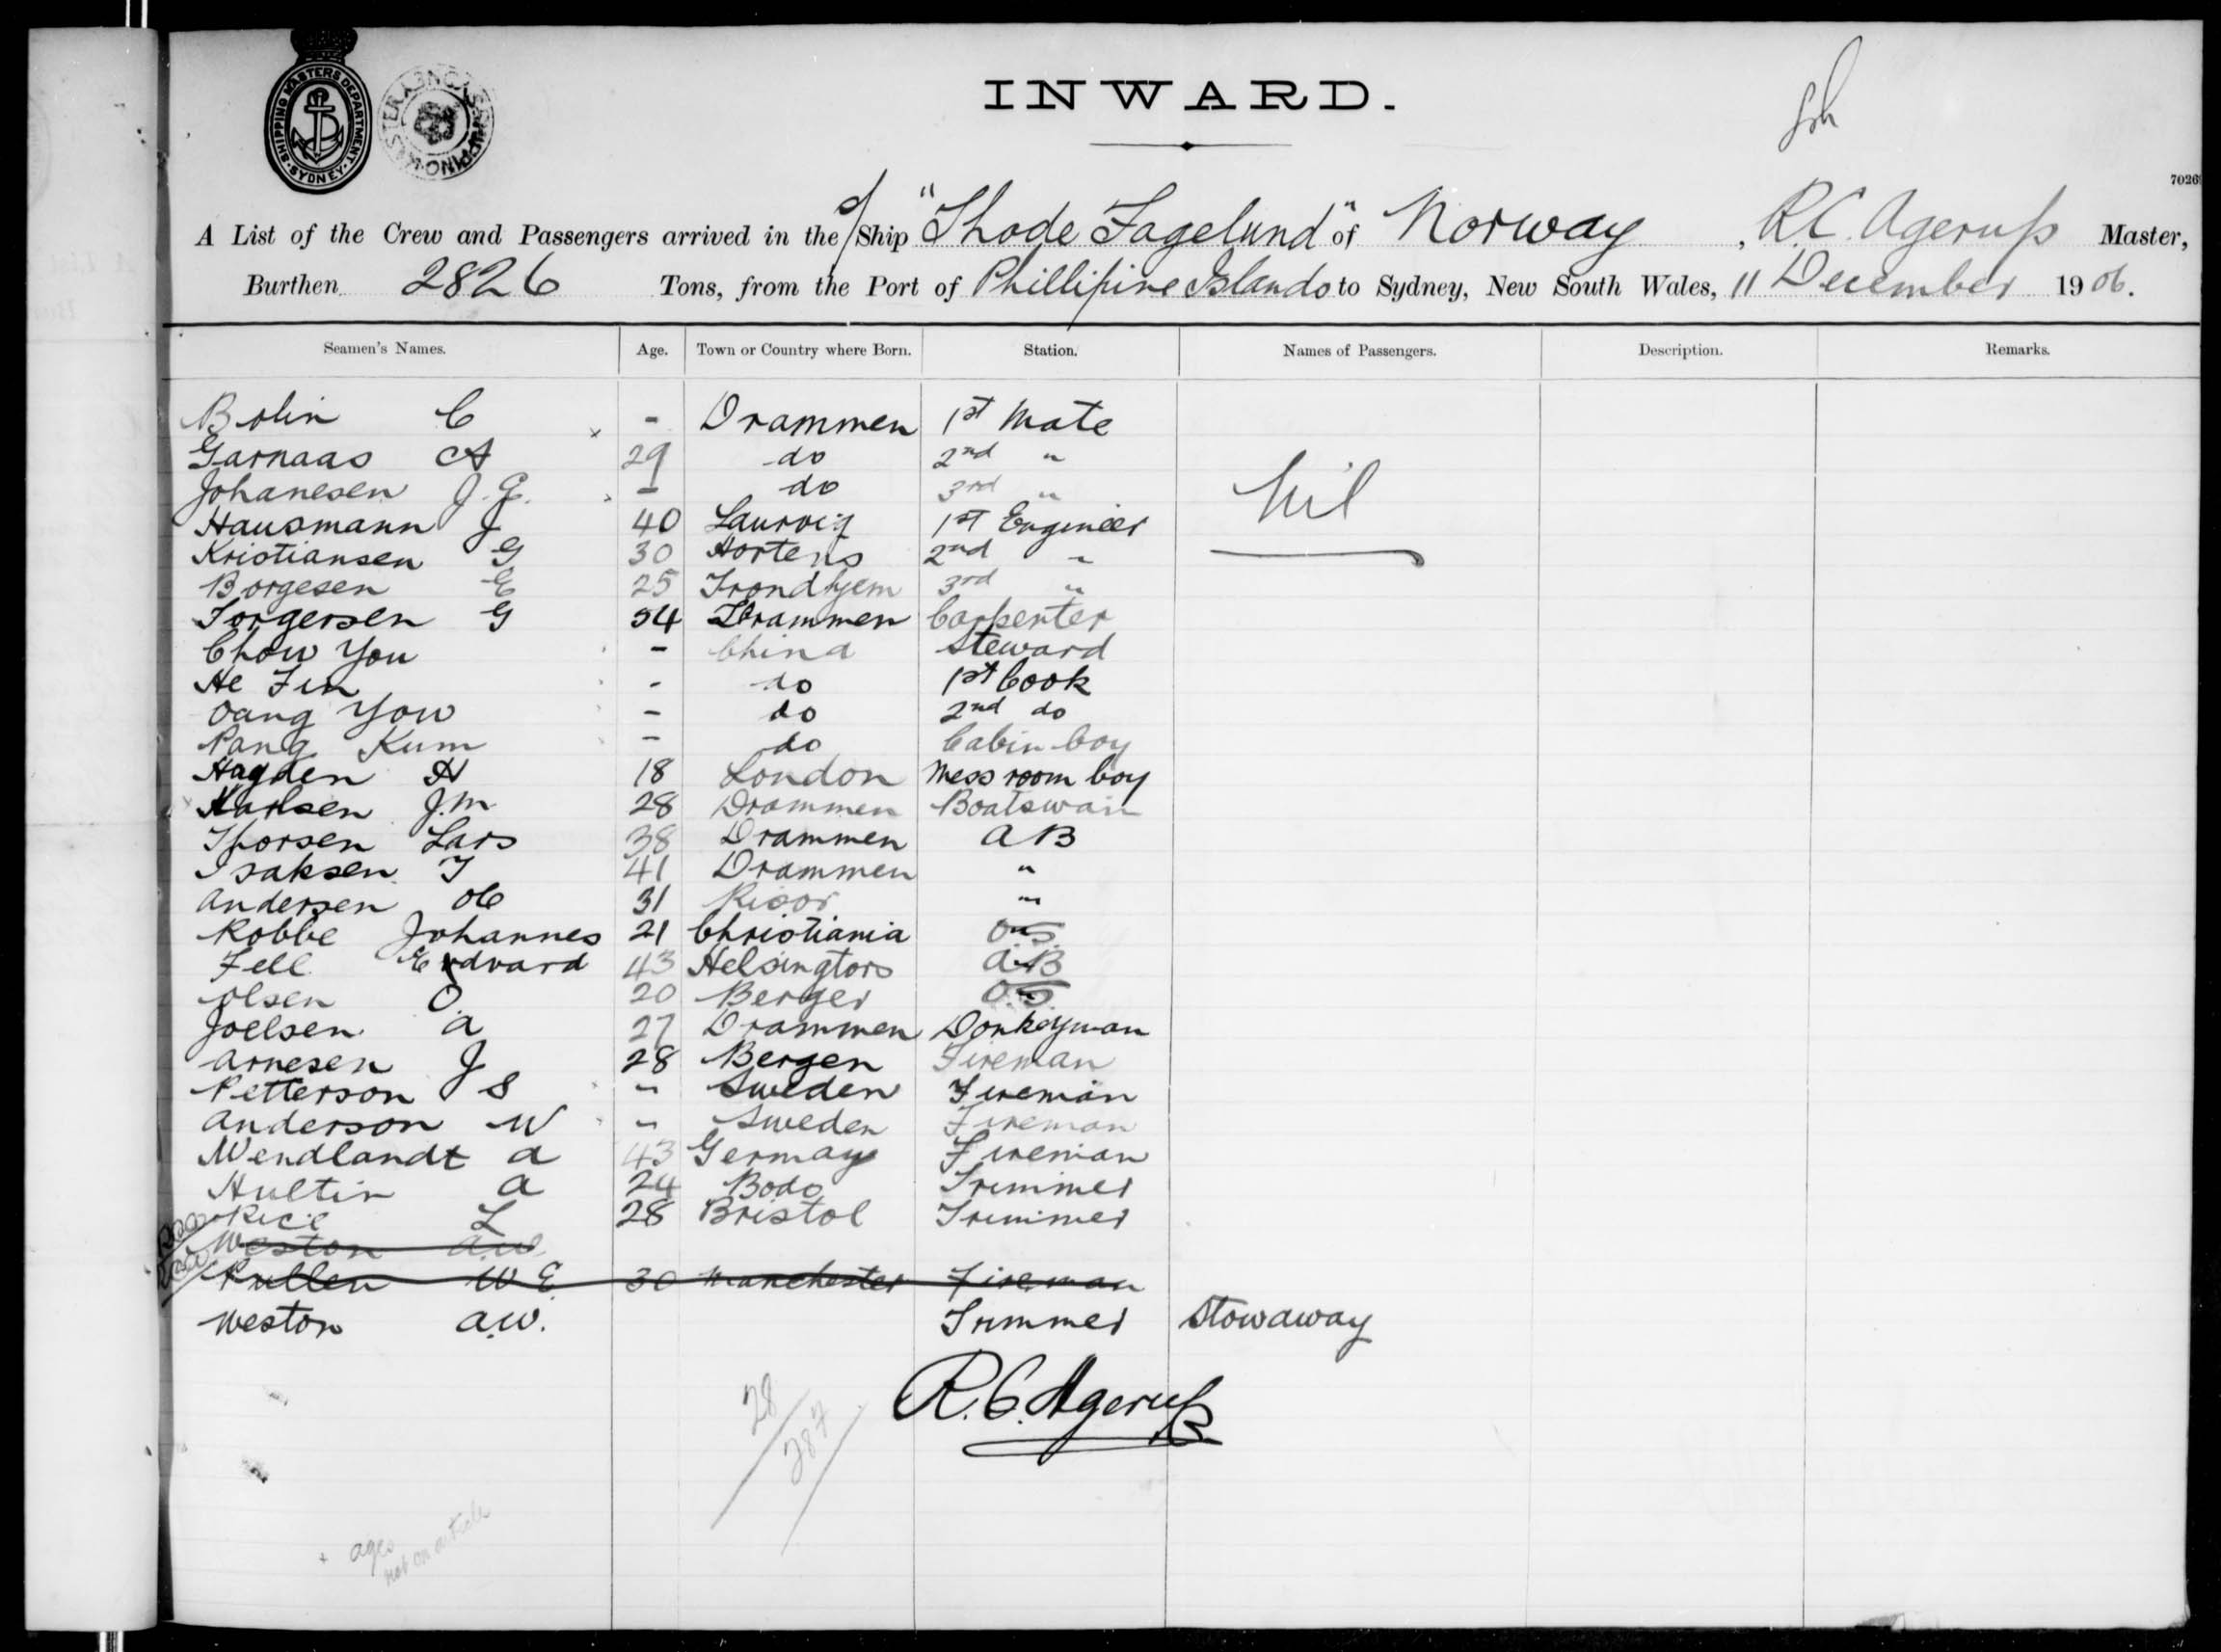 SHIPPING MASTERS DEPARTMENT · SYDNEY ·
INWARD.
A List of the Crew and Passengers arrived in the s/Ship "Thode Fagelund" of Norway, R.C. Agerup Master,
Burthen 2826 Tons, from the Port of Phillipine Islands to Sydney, New South Wales, 11 December 1906.
Seamen's Names. Age. Town or Country where Born. Station. Names of Passengers. Description. Remarks.
Bolin C - Drammen 1st Mate
Garnaas A 29 do 2nd "
Johanesen J. G. - do 3rd "
Nil
Hausmann J 40 Laurvig 1st Engineer
Kristiansen G 30 Hortens 2nd "
Borgesen E 25 Trondhjem 3rd "
Torgersen G 54 Drammen Carpenter
Chow You - China Steward
He Fin - do 1st Cook
Oang Yow - do 2nd do
Pang Kum - do Cabin boy
Hayden H 18 London Mess room boy
Karlsen J.M 28 Drammen Boatswain
Thorsen Lars 38 Drammen AB
Isaksen I 41 Drammen "
Andersen Ole 31 Risor "
Robbe Johannes 21 Christiania OS
Fell Edvard 43 Helsingfors A.B
Olsen O. 20 Berger O.S.
Joelsen A 27 Drammen Donkeyman
Arnesen J 28 Bergen Fireman
Petterson S - Sweden Fireman
Anderson W - Sweden Fireman
Wendlandt A 43 Germany Fireman
Hultin A 24 Bodo Trimmer
Rice L 28 Bristol Trimmer
Weston A.W.
Pullen W E. 30 Manchester Fireman
Weston A.W. Trimmer Stowaway
R. C. Agerup
28/
287/
+ ages
not on article